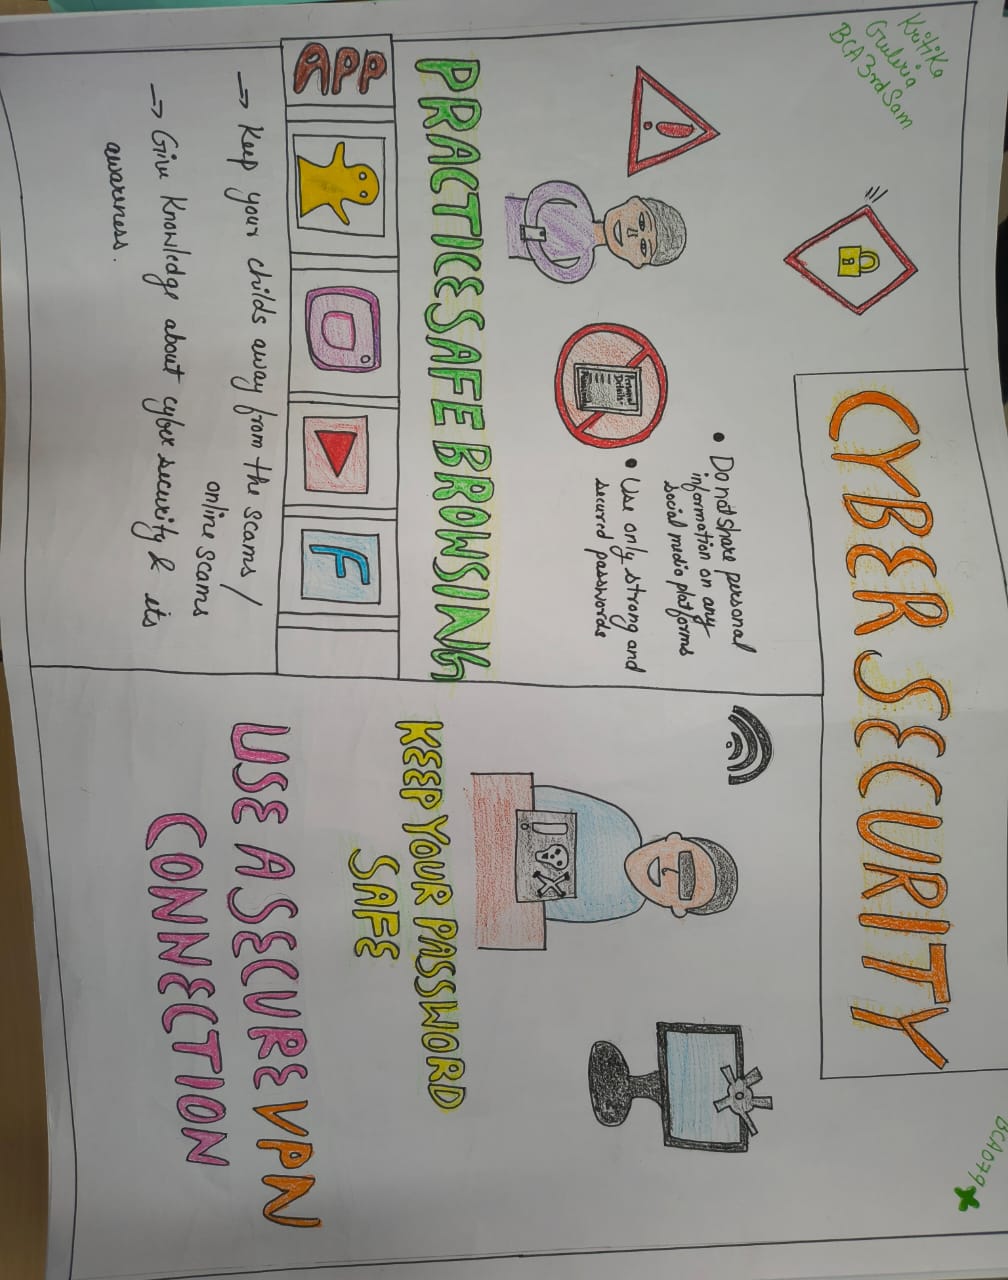 Kritika
Guleria
BCA 3rd Sam
BCA079
CYBER SECURITY
• Do not share personal
information on any
social media platforms
• Use only strong and
secured passwords
Personal
Details
PRACTICE SAFE BROWSING
APP
F
→ Keep your childs away from the scams/
online scams
→ Give Knowledge about cyber security & its
awareness.
KEEP YOUR PASSWORD
SAFE
USE A SECURE VPN
CONNECTION